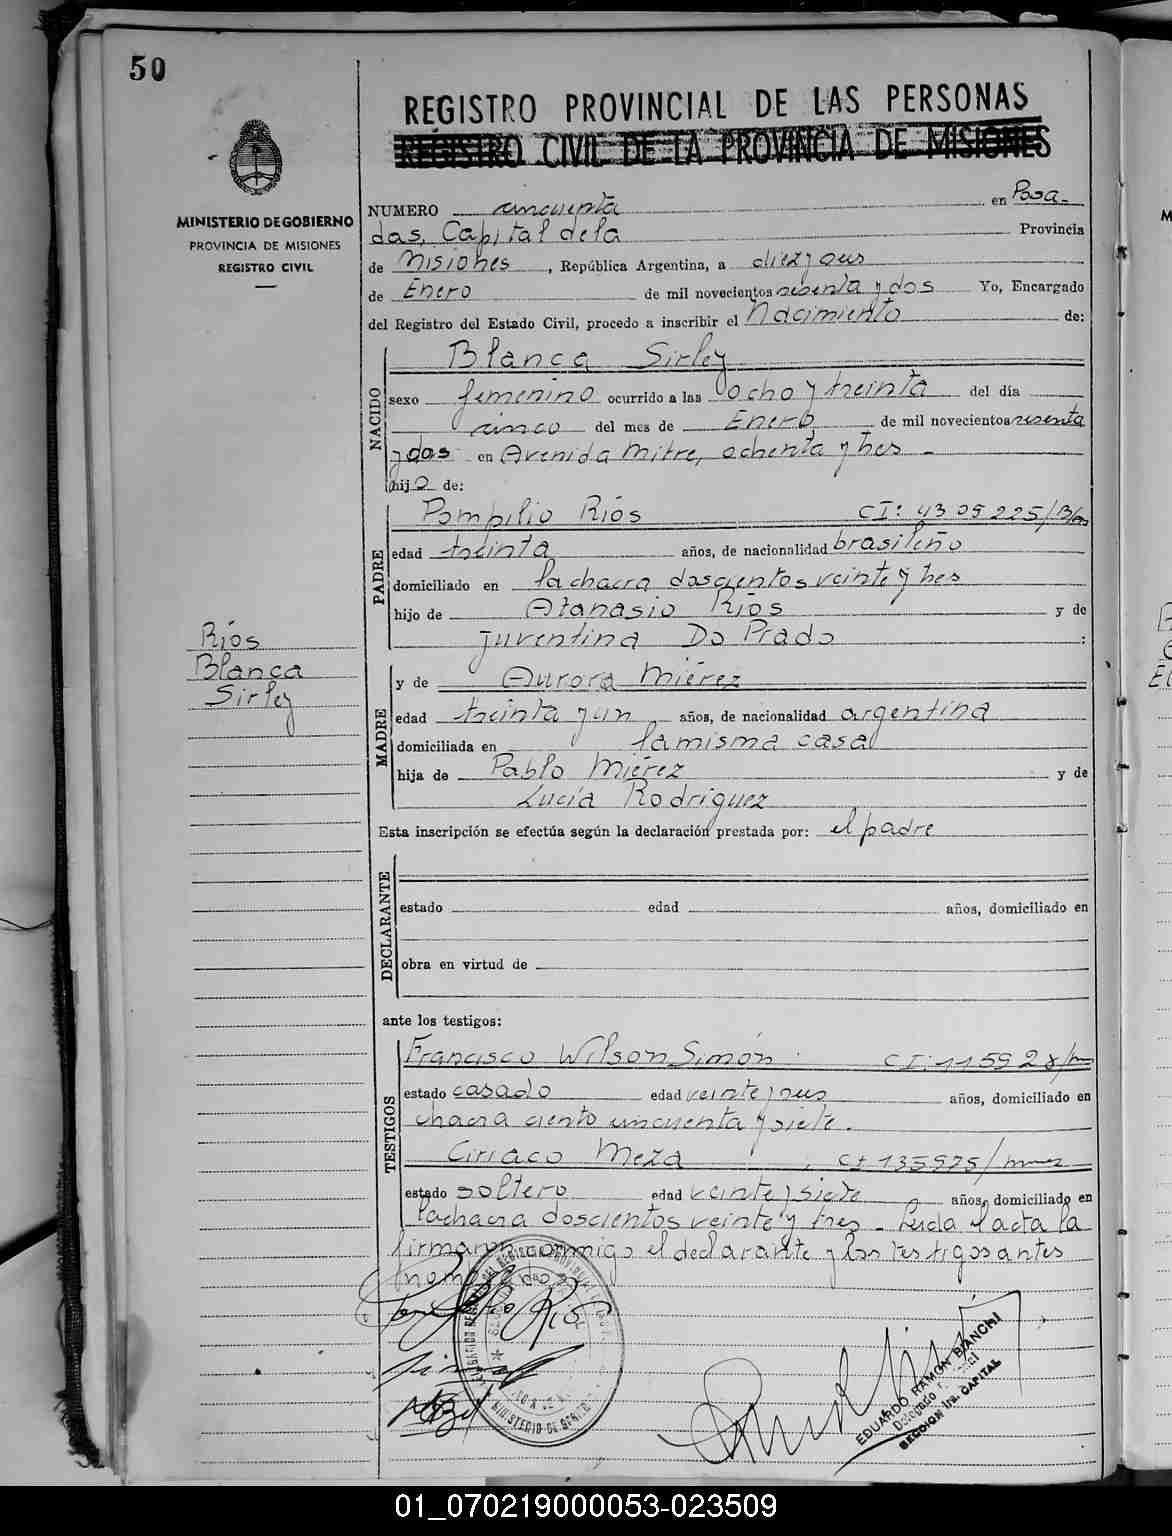 50
REGISTRO PROVINCIAL DE LAS PERSONAS
REGISTRO CIVIL DE LA PROVINCIA DE MISIONES
MINISTERIO DE GOBIERNO
PROVINCIA DE MISIONES
REGISTRO CIVIL
NUMERO cincuenta en Posa-
das, Capital de la Provincia
de Misiones, República Argentina, a diez y seis
de Enero de mil novecientos sesenta y dos Yo, Encargado
del Registro del Estado Civil, procedo a inscribir el Nacimiento de:
NACIDO
Blanca Sirley
sexo femenino ocurrido a las ocho y treinta del día
cinco del mes de Enero de mil novecientos sesenta
y dos en Avenida Mitre, ochenta y tres -
hija de:
PADRE
Pompilio Ríos CI: 4309225/
edad treinta años, de nacionalidad brasileño
domiciliado en la chacra doscientos veinte y tres
hijo de Atanasio Ríos y de
Juventina Do Prado :
Ríos
Blanca
Sirley
MADRE
y de Aurora Miérez
edad treinta y un años, de nacionalidad argentina
domiciliada en la misma casa
hija de Pablo Miérez y de
Lucía Rodríguez
Esta inscripción se efectúa según la declaración prestada por: el padre
DECLARANTE
estado edad años, domiciliado en
obra en virtud de
ante los testigos:
TESTIGOS
Francisco Wilson Simón CI: 115928/
estado casado edad veinte y seis años, domiciliado en
chacra ciento cincuenta y siete.
Ciriaco Meza CI 135975/
estado soltero edad veinte y siete años, domiciliado en
la chacra doscientos veinte y tres - Leída el acta la
firman conmigo el declarante y los testigos antes
nombrados
EDUARDO RAMON BIANCHI
Delegado
SECCION 1ra. CAPITAL
01_070219000053-023509